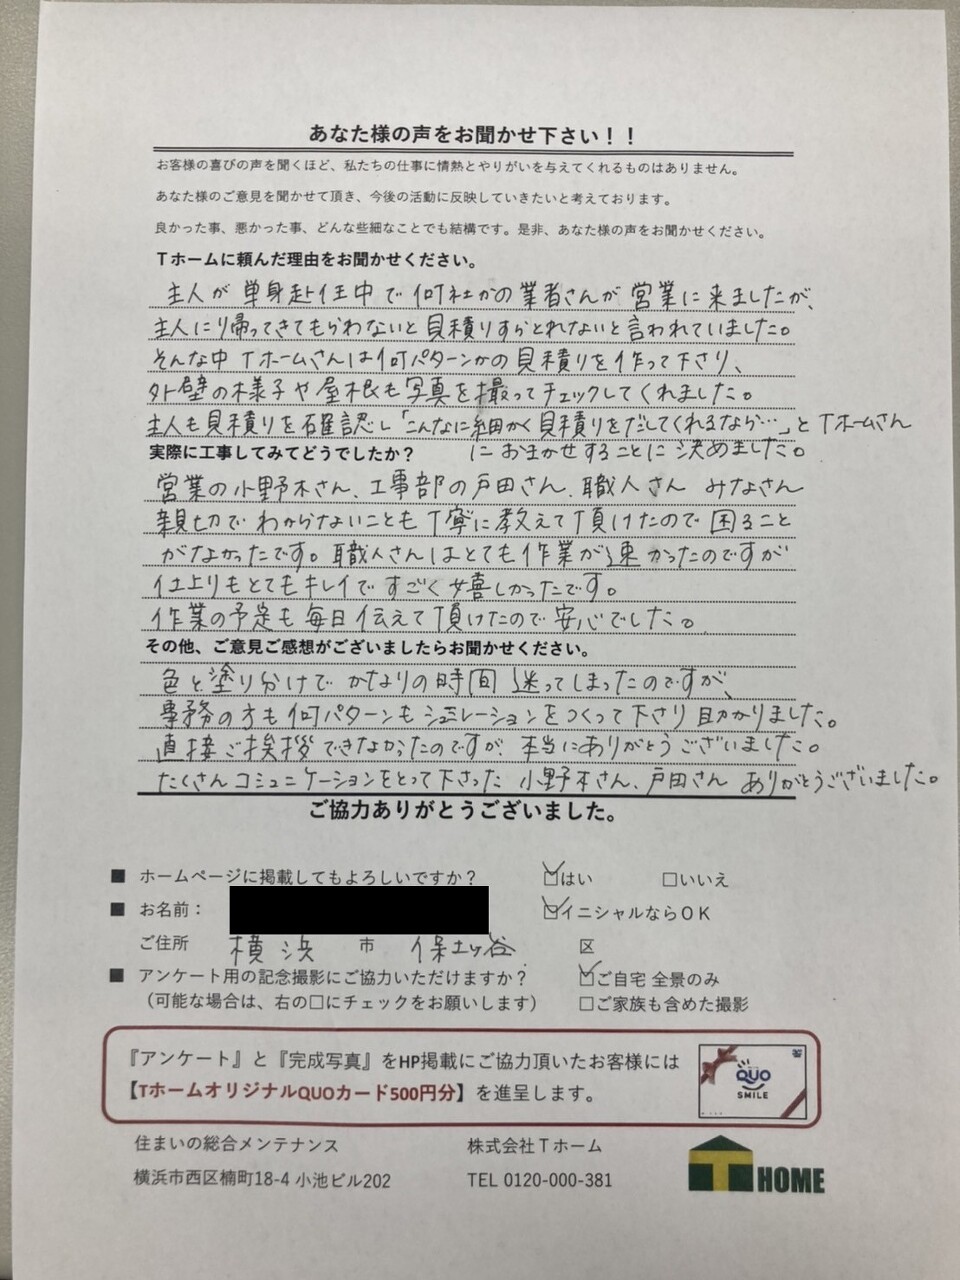 あなた様の声をお聞かせ下さい！！
お客様の喜びの声を聞くほど、私たちの仕事に情熱とやりがいを与えてくれるものはありません。
あなた様のご意見を聞かせて頂き、今後の活動に反映していきたいと考えております。
良かった事、悪かった事、どんな些細なことでも結構です。是非、あなた様の声をお聞かせください。
Ｔホームに頼んだ理由をお聞かせください。
主人が単身赴任中で何社かの業者さんが営業に来ましたが、
主人に帰ってきてもらわないと見積りすらとれないと言われていました。
そんな中Ｔホームさんは何パターンかの見積りを作って下さり、
外壁の様子や屋根も写真を撮ってチェックしてくれました。
主人も見積りを確認し「こんなに細かく見積りをだしてくれるなら…」とＴホームさん
におまかせすることに決めました。
実際に工事してみてどうでしたか？
営業の小野木さん、工事部の戸田さん、職人さん みなさん
親切でわからないことも丁寧に教えて頂けたので困ること
がなかったです。職人さんはとても作業が速かったのですが
仕上りもとてもキレイですごく嬉しかったです。
作業の予定も毎日伝えて頂けたので安心でした。
その他、ご意見ご感想がございましたらお聞かせください。
色と塗り分けでかなりの時間迷ってしまったのですが、
事務の方も何パターンもシュミレーションをつくって下さり助かりました。
直接ご挨拶できなかったのですが、本当にありがとうございました。
たくさんコミュニケーションをとって下さった小野木さん、戸田さんありがとうございました。
ご協力ありがとうございました。
■ ホームページに掲載してもよろしいですか？ ☑はい □いいえ
■ お名前： ☑イニシャルならＯＫ
ご住所 横浜 市 保土ヶ谷 区
■ アンケート用の記念撮影にご協力いただけますか？ ☑ご自宅 全景のみ
（可能な場合は、右の□にチェックをお願いします） □ご家族も含めた撮影
『アンケート』と『完成写真』をHP掲載にご協力頂いたお客様には
【TホームオリジナルQUOカード500円分】を進呈します。
QUO
SMILE
住まいの総合メンテナンス 株式会社Ｔホーム
横浜市西区楠町18-4 小池ビル202 TEL 0120-000-381
T HOME